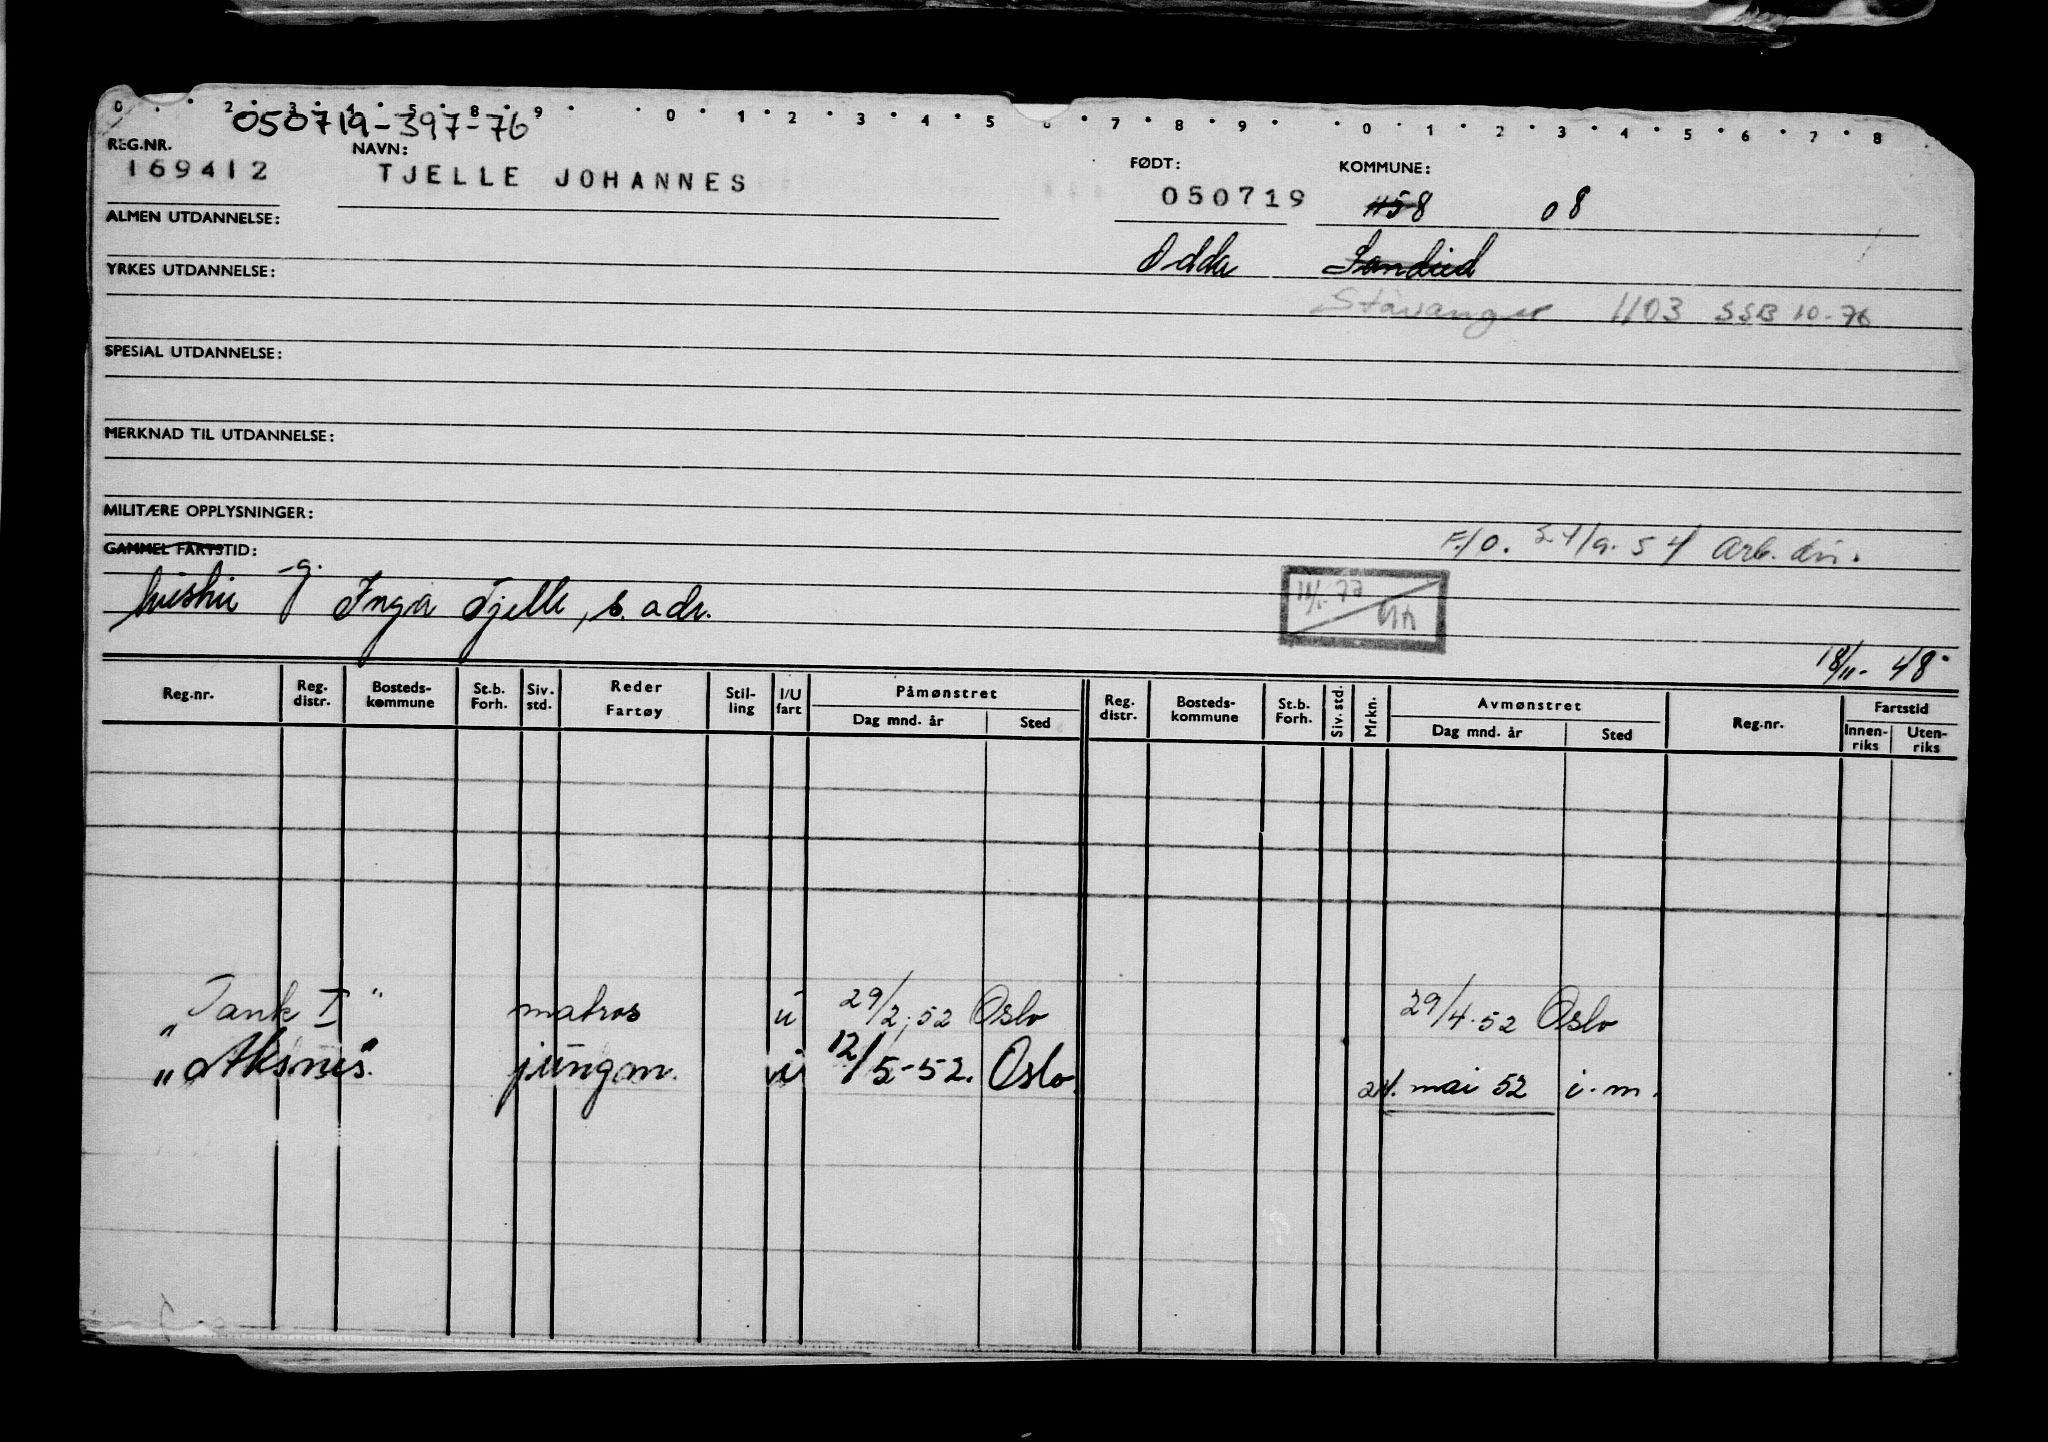 0 2 3 4 5 8 9 0 1 2 3 4 5 6 7 8 9 0 1 2 3 4 5 6 7 8
050719-397-76
REG.NR. NAVN: FØDT: KOMMUNE:
169412 TJELLE JOHANNES 050719 1158 08
ALMEN UTDANNELSE:
Odda Sandeid
YRKES UTDANNELSE:
Stavanger 1103 SSB 10-76
SPESIAL UTDANNELSE:
MERKNAD TIL UTDANNELSE:
MILITÆRE OPPLYSNINGER:
F/O. 24/9.54 Arb. dir.
GAMMEL FARTSTID:
hustru g. Inga Tjelle, s. adr.
18/11-48
Reg.nr. Reg. distr. Bosteds-kommune St.b. Forh. Siv. std. Reder Fartøy Stil-ling I/U fart Påmønstret Dag mnd. år Sted Reg. distr. Bosteds-kommune St.b. Forh. Siv. std. Mrkn. Avmønstret Dag mnd. år Sted Reg.nr. Fartstid Innen-riks Uten-riks
"Tank I" matros u 29/2.52 Oslo 29/4.52 Oslo
"Aksnes" jungm. u 12/5-52. Oslo. 24. mai 52 i.m.